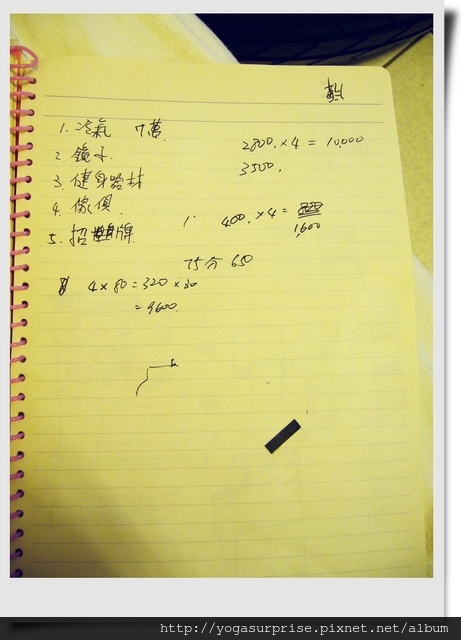 1. 冷氣 7萬.
2. 鏡子.
2800. × 4 = 10,000
3. 健身器材
3500.
4. 傢俱.
400. × 4 =
1,600
5. 招牌.
75分 650
4 × 80 = 320 × 30
= 9600.
http://yogasurprise.pixnet.net/album